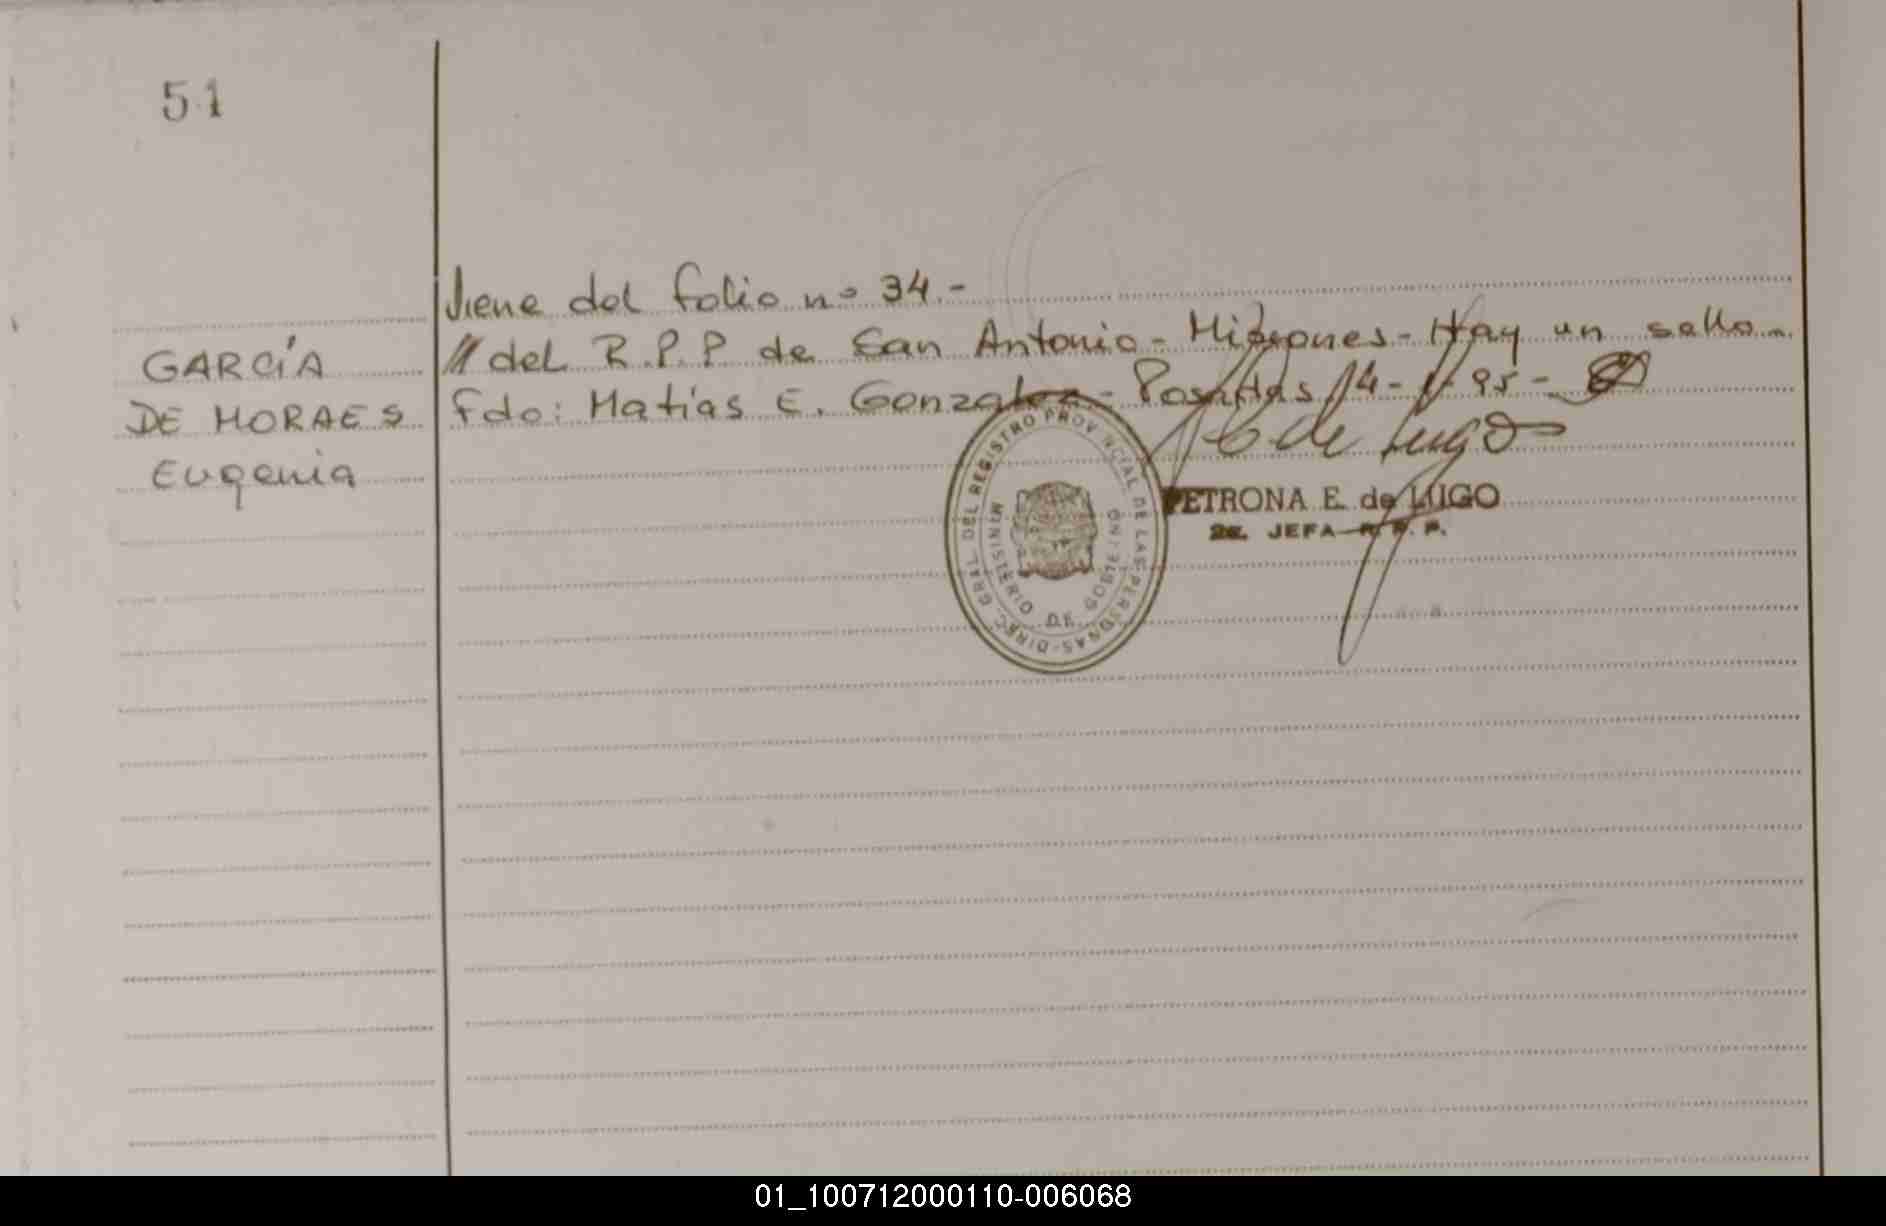 51
Viene del folio nº 34.-
// del R.P.P de San Antonio - Misiones - Hay un sello.
GARCÍA
DE MORAES
Eugenia
Fdo: Matías E. Gonzalez - Posadas 14-1-95-
de Lugo
PETRONA E. de LUGO
2e. JEFA R. P. P.
DIREC. GRAL. DEL REGISTRO PROVINCIAL DE LAS PERSONAS
MINISTERIO DE GOBIERNO
01_100712000110-006068